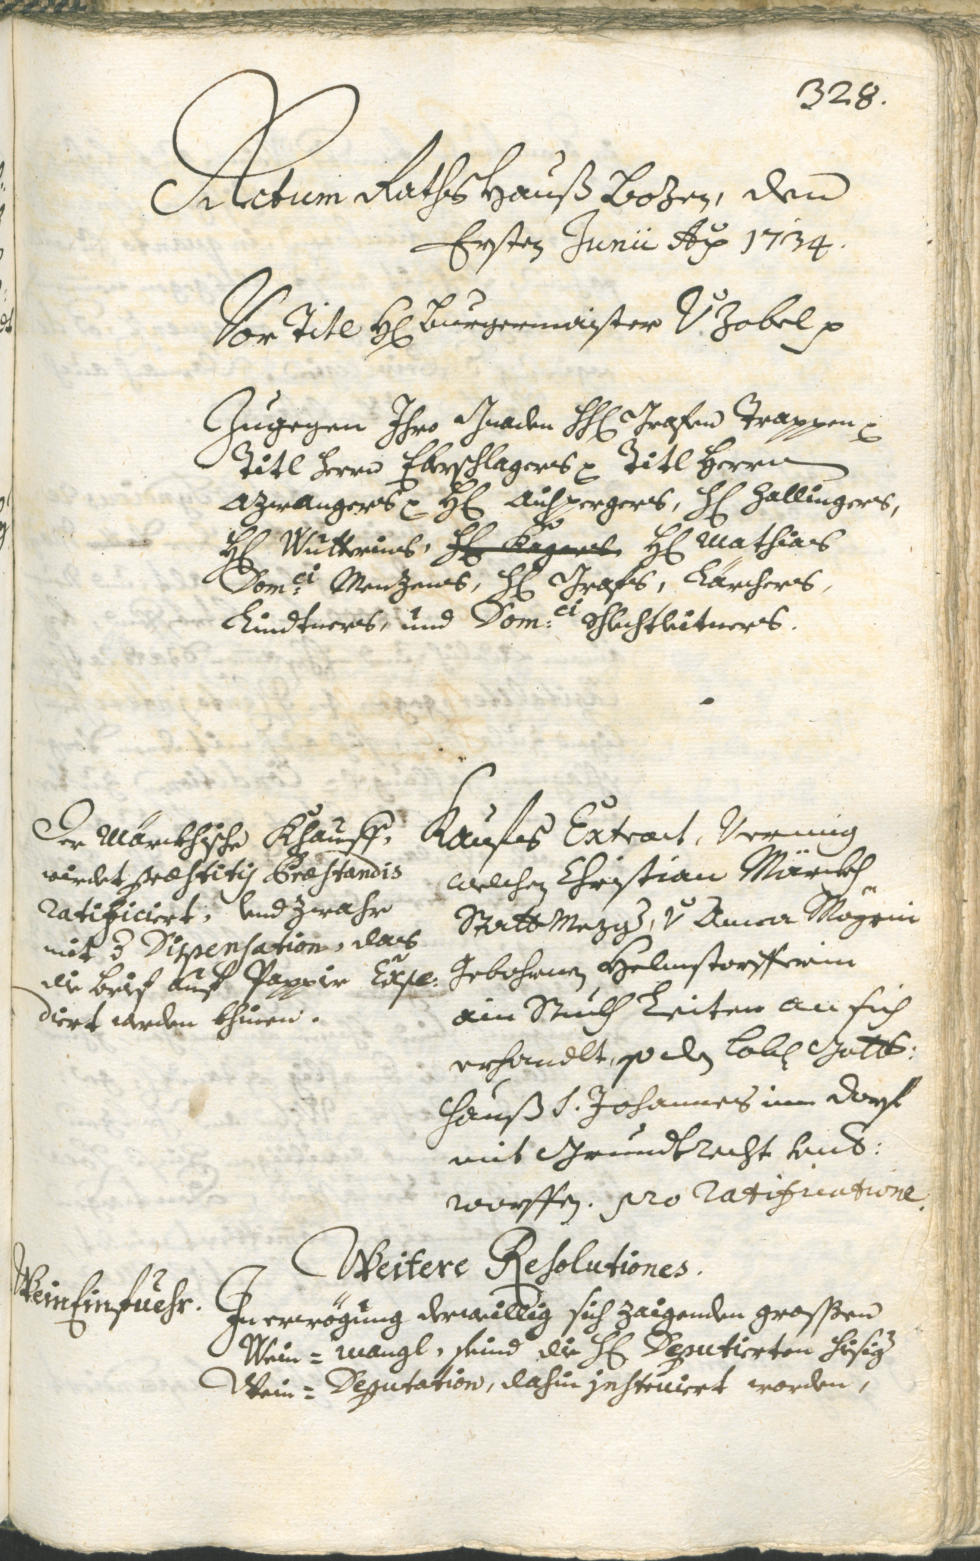 328.
Actum Raths Hauß Bozen, den
Ersten Junii Ao 1734.
Vor Titl H: Burgermaister v Zobel p
Zugegen Ihro Gnaden H: Grafen Trappen p
Titl Herrn Eberschlagers p Titl Herrn
Azwangers p H: Aichpergers, H: Hallingers,
H: Mathias
Dom: ci Menzens, H: Grafs, Kärchers,
Lindtners, und Dom: ci Schlechtleitners.
Der Märckhische Khauff,
wirdet praestitis Praestandis
ratificiert, vnd zwahr
mit d Dispensation, das
die brief auf Pappir Expe:
diert werden khinen.
Kaufs Extract, Vermög
welchen Christian Märckh
Statt Mezg, v Anna Mayrin
Gebohrnen Helmstorfferin
ain Stuckh Leiten an sich
erhandlt, so dem Lobl Gotts:
hauß S. Johannes im Dorf
mit Grundtrecht vnd:
worffen. pro ratificatione.
Weitere Resolutiones.
Wein Einfuehr.
In erwögung derweillig sich zaigenden grossen
Wein = mangl, seind die H: Deputierten hiesig
Wein = Deputation, dahin instruiert worden,